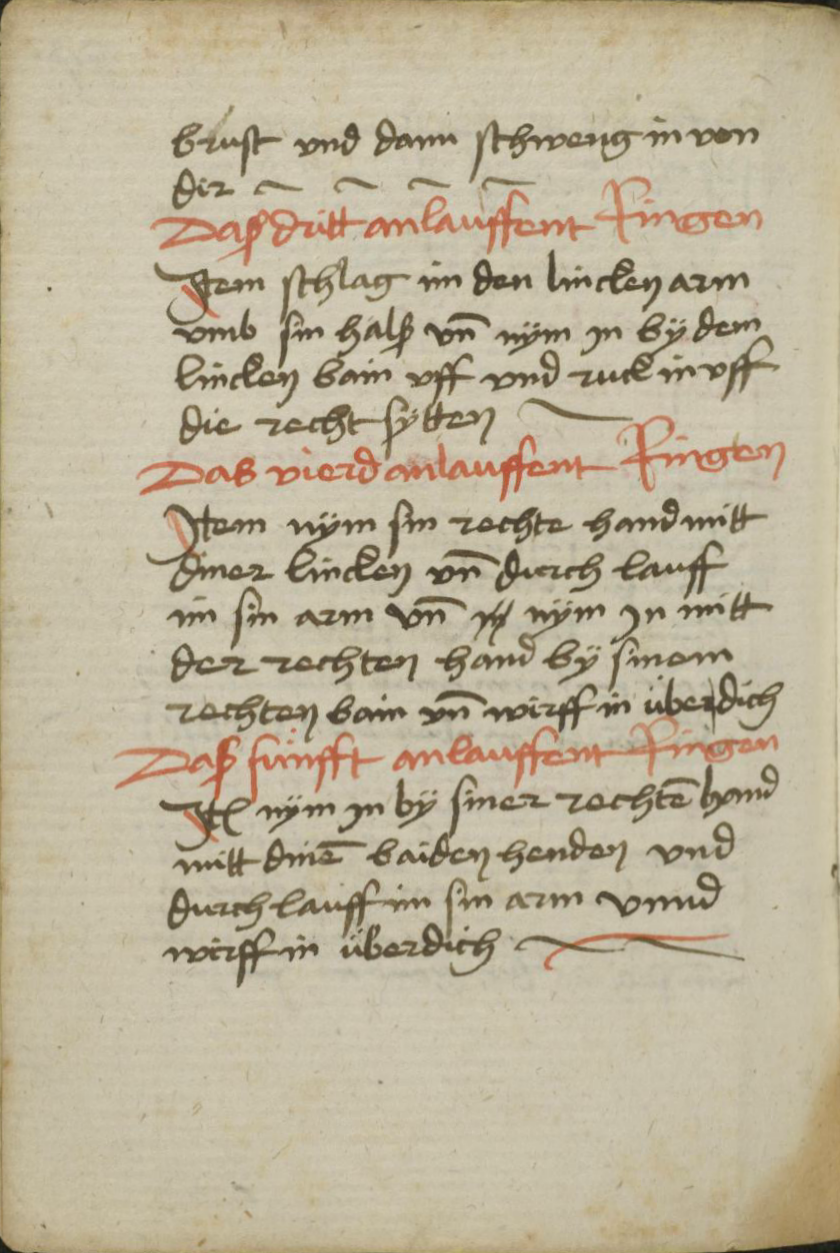 brust vnd dann schweng in von
dir
Daß dritt anlauffent Ringen
Item schlag im den lincken arm
vmb sin halß vn̄ nÿm jn bÿ dem
lincken bain vff vnd ruck in vff
die recht sÿtten
Das vierd anlauffent Ringen
Item nÿm sin rechte hand mitt
diner lincken vn̄ durch lauff
im sin arm vn̄ nÿm jn mitt
der rechten hand bÿ sinem
rechten bain vn̄ wirff in über dich
Daß fünfft anlauffent Ringen
Itē nÿm jn bÿ siner rechtē hand
mitt dinē baiden henden vnd
durch lauff im sin arm vnnd
wirff in über dich